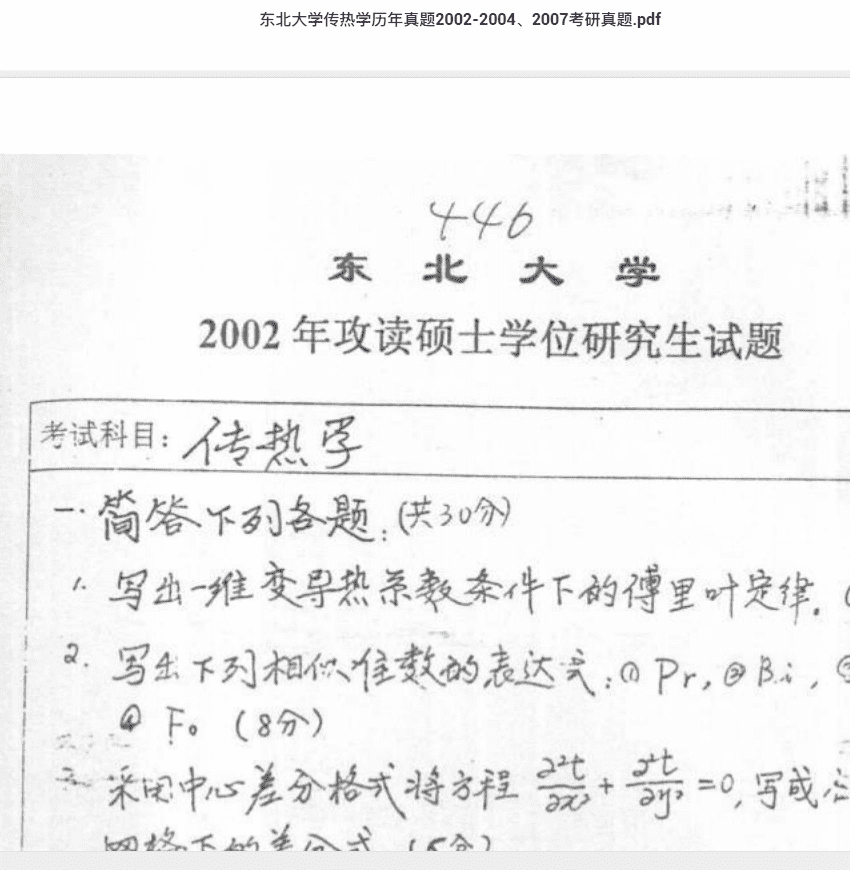 东北大学传热学历年真题2002-2004、2007考研真题.pdf
446
东北大学
2002年攻读硕士学位研究生试题
考试科目: 传热学
一. 简答下列各题:(共30分)
1. 写出一维变导热系数条件下的傅里叶定律.(
2. 写出下列相似准数的表达式:① Pr, ② Bi,
④ Fo (8分)
采用中心差分格式将方程 ∂²t/∂x² + ∂²t/∂y² = 0, 写成
网格下的差分式 (5分)